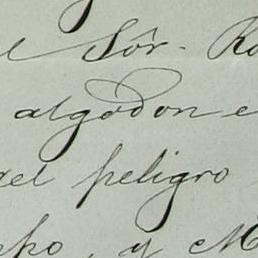 el Sôr. Ro
algodon e
del peligro
cho, y M